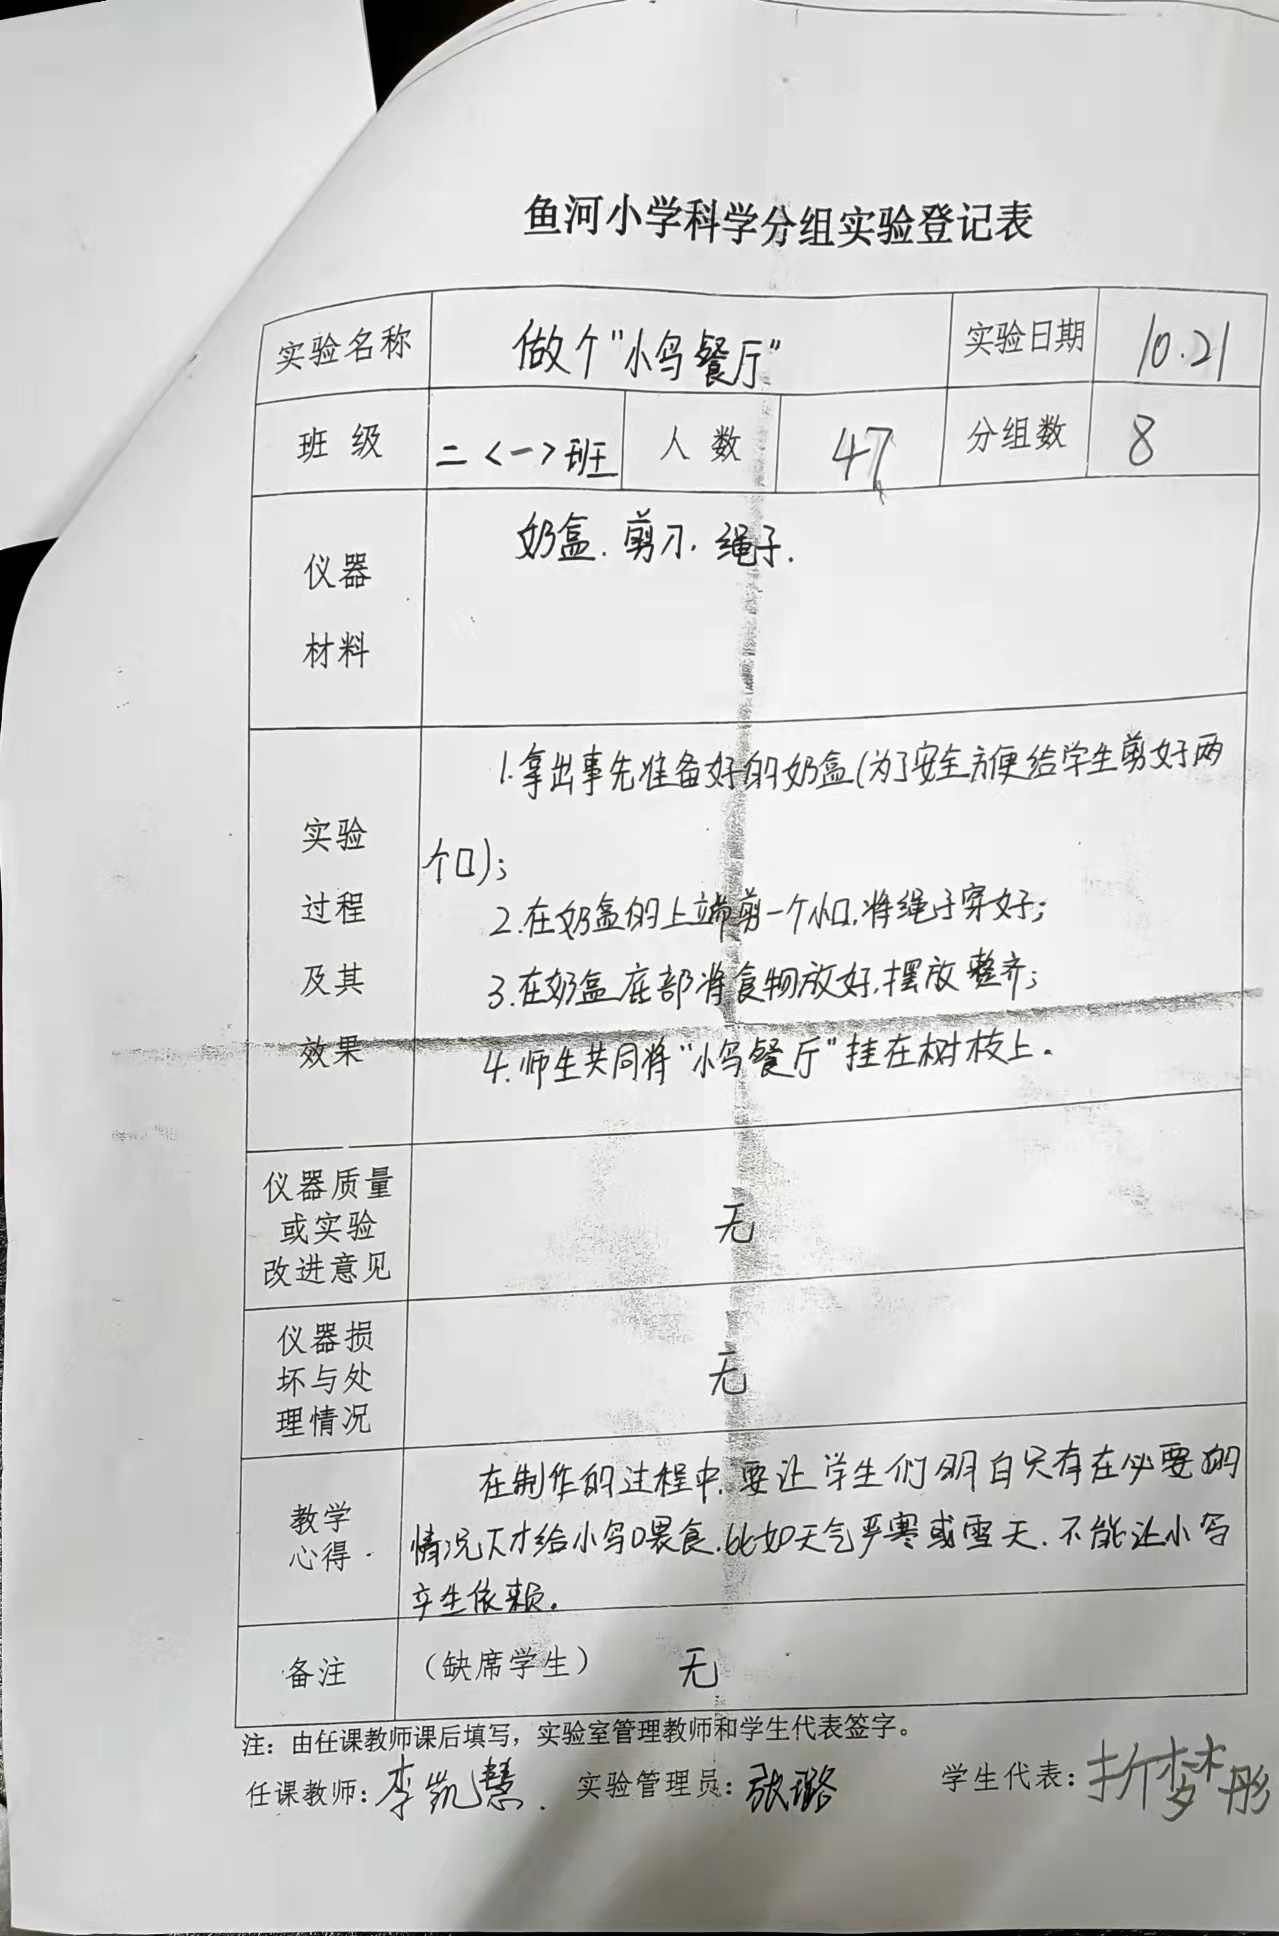 鱼河小学科学分组实验登记表
实验名称 做个"小鸟餐厅" 实验日期 10.21
班级 二<一>班 人数 47 分组数 8
仪器
材料
奶盒.剪刀.绳子.
实验
过程
及其
效果
1.拿出事先准备好的奶盒(为了安全方便给学生剪好两
个口);
2.在奶盒的上端剪一个小口,将绳子穿好;
3.在奶盒底部将食物放好,摆放整齐;
4.师生共同将"小鸟餐厅"挂在树枝上.
仪器质量
或实验
改进意见
无
仪器损
坏与处
理情况
无
教学
心得
在制作的过程中,要让学生们明白只有在必要的
情况下才给小鸟喂食,比如天气严寒或雪天.不能让小鸟
产生依赖。
备注 (缺席学生) 无
注:由任课教师课后填写,实验室管理教师和学生代表签字。
任课教师:李凯慧. 实验管理员:张璐 学生代表:折梦彤